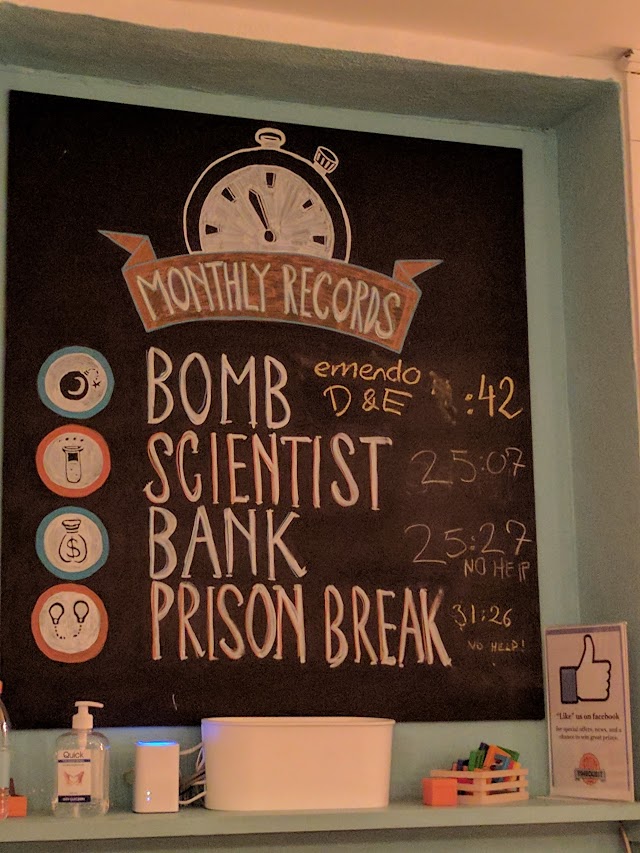 MONTHLY RECORDS
BOMB emendo :42
D & E
SCIENTIST 25:07
BANK 25:27
NO HELP
PRISON BREAK 31:26
NO HELP!
$
Quick
"Like" us on facebook
for special offers, news, and a
chance to win great prizes.